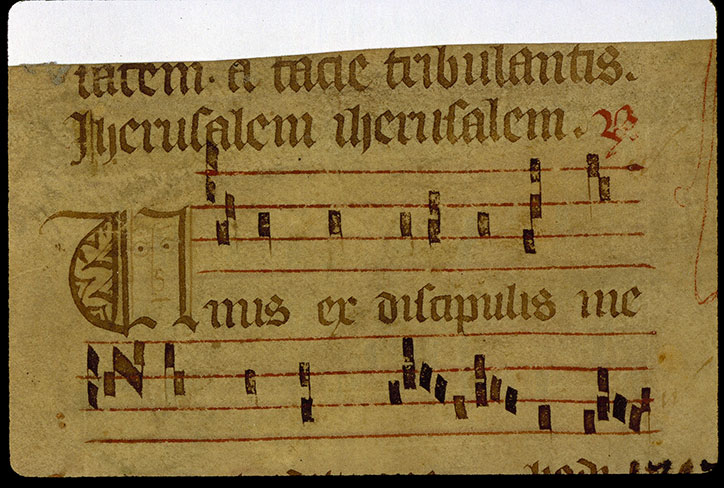 tatem. a facie tribulantis.
Iherusalem iherusalem. V
Unus ex discipulis me
hodi